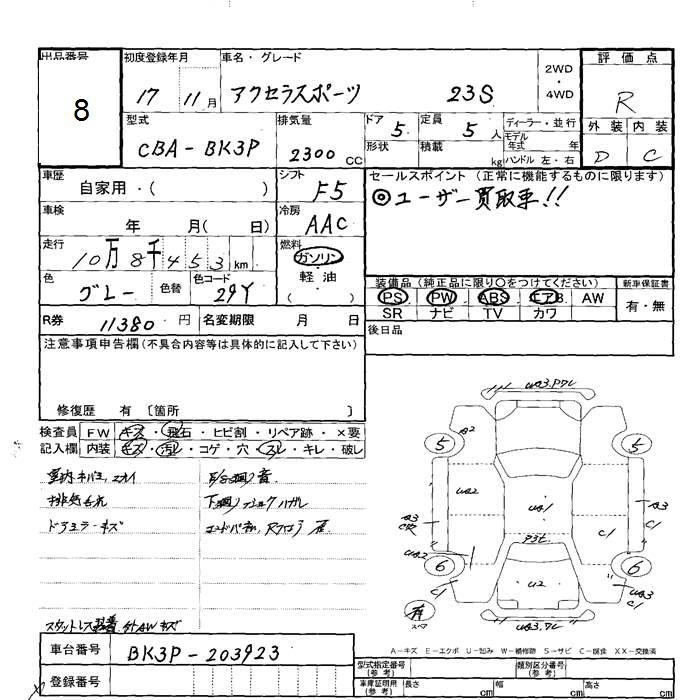 出品番号 初度登録年月 車名・グレード 2WD ・ 4WD 評価点
8 17 11月 アクセラスポーツ 23S R
型式 排気量 ドア 定員 ディーラー・並行 外装 内装
CBA-BK3P 2300cc 5 5人 モデル年式 年式 D C
形状 積載 kg ハンドル 左・右
車歴 シフト セールスポイント(正常に機能するものに限ります)
自家用・( ) F5 ◎ユーザー買取車!!
車検 冷房
年 月( 日) AAC
走行 燃料
10万8千453km ガソリン
色 色替 色コード 軽油
グレー 29Y ( )
装備品(純正品に限り○をつけてください) 新車保証書
PS PW ABS エアB AW 有・無
SR ナビ TV カワ
R券 11380円 名変期限 月 日 後日品
注意事項申告欄(不具合内容等は具体的に記入して下さい)
修復歴 有 〔箇所 〕
検査員 FW キズ・飛石・ヒビ割・リペア跡・×要
記入欄 内装 キズ・汚レ・コゲ・穴・スレ・キレ・破レ
排気もれ
ドアミラーキズ
UA3.P7L
A2 5 5
UA2 UA1 A3
A3 C1 C1
UA2 P3t
6 6
C1 U2 UA3 C1
有 スペア
UA3.7L
A-キズ E-エクボ U-凹み W-補修跡 S-サビ C-腐食 XX-交換済
車台番号 BK3P-203923
登録番号
型式指定番号(参考) 類別区分番号(参考)
車庫証明用(参考) 長さ cm 幅 cm 高さ cm